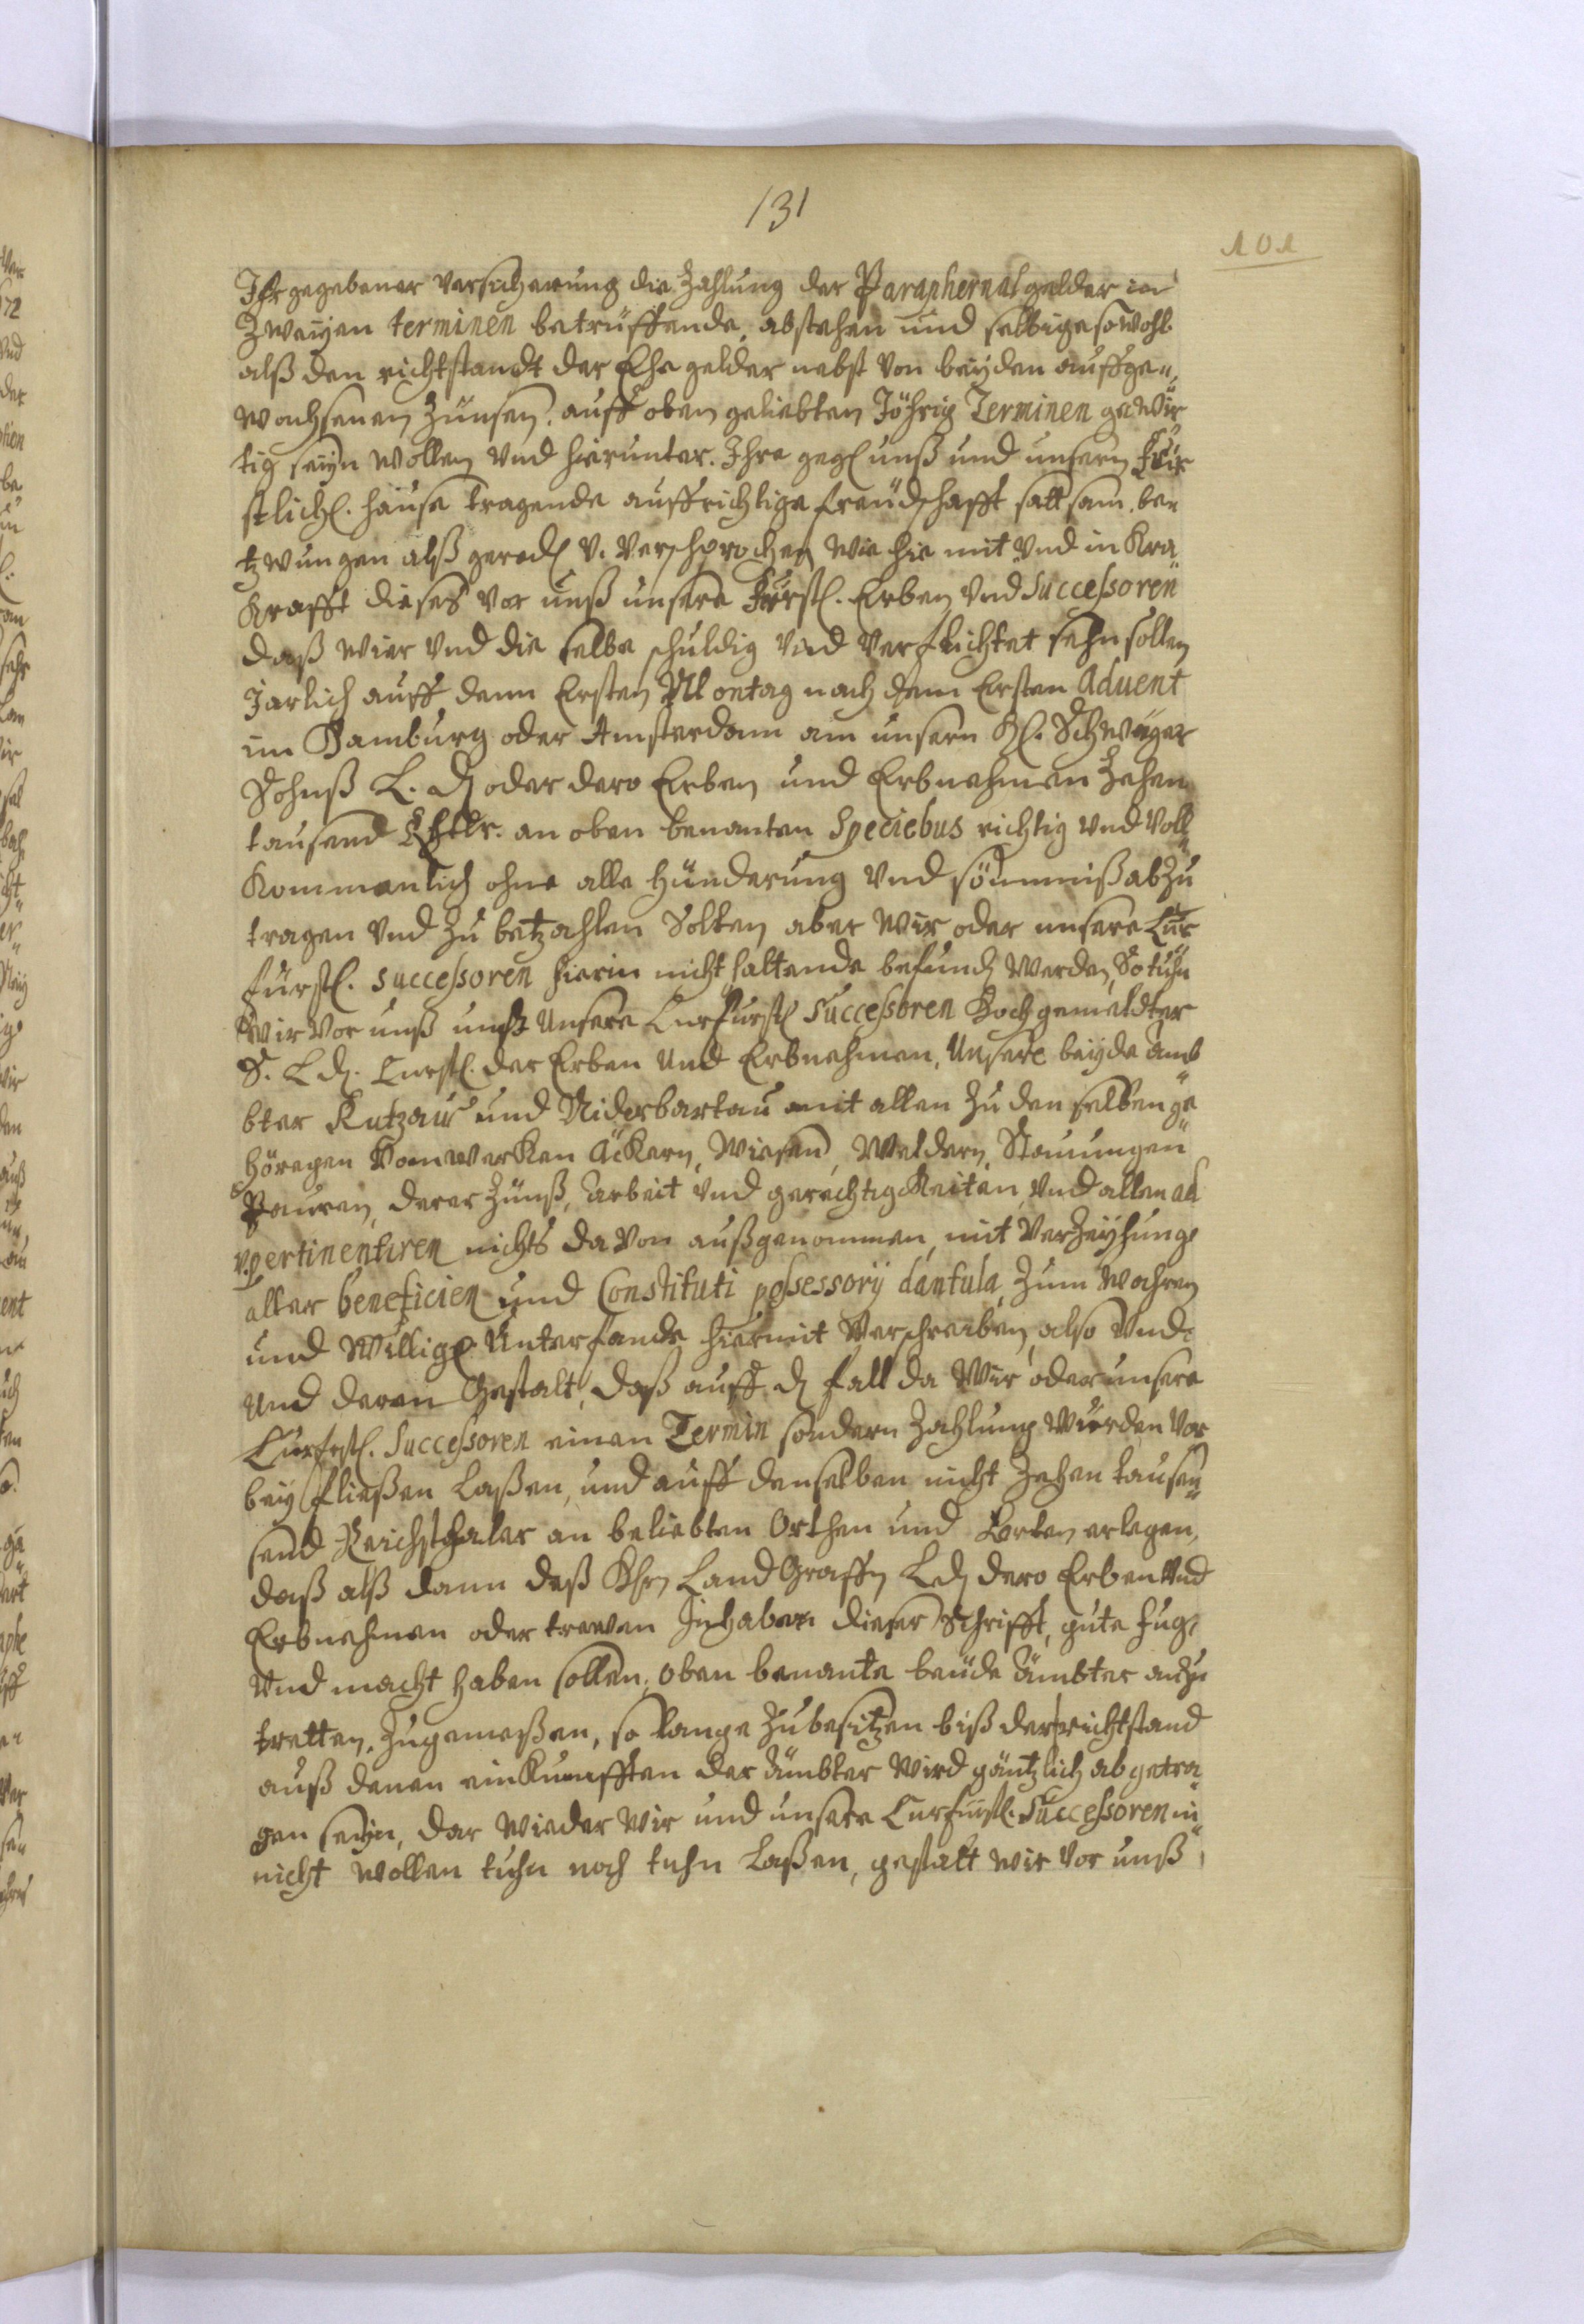 131
101
Ihr gegebener versicherung die Zahlung der Paraphernal gelder in
Zweyen terminen betrüffende, abstehen und selbige so wohl
alß den richtstandt der Ehe gelder nebst von beyden auffge„
wachsenen Zünsen, auff oben geliebten Jöhrig Terminen gewär
tig seyn wollen vnd hierunter. Ihre gegl unß und unsern Für
stlichl. hause tragende auffrichtige freudschafft sattsam. be„
tzwungen alß geredl v. verschprochen wie hie mit vnd in Kra
Krafft dieses vor unß unsere Fürstl. Erben vnd Successoren
daß wier vnd die selbe schuldig vnd verflichtet sehn sollen
Jarlich auff denn Ersten Montag nach dem Ersten Aduent
im Hamburg oder Amsterdam am unsern Hl. Schwäger
Sohnß L. d oder dero Erben und Erbnehmen Zehen
tausend Rthlr. an oben benanten Speciebus richtig vnd voll
Kommenlich ohne alle Hünderung vnd sömmniß abzu
tragen vnd zu betzahlen Solten aber wir oder unsere Cur
fürstl. successoren hierin nicht haltende befundn werden, So tuhn
wir vor unß und Unsere Curfürstl Successoren Hochgemeldter
S. L d. Curstl. der Erben Und Erbnehmen, Unsere beyde Amb
bter Rutzau und Niderbartau mit allen zu den selben ge
hörigen Vorwerken Äckern, Wiesen, Weldern, Stauungen
Pauren, derer Zünß, Arbeit vnd gerechtigkeiten, vnd allen ad
v. pertinentiren nichts da von außgenommen, mit Verzeyhung
aller beneficien und Constituti possessorij dantula, zum wahren
und Willigl Unterfande hiermit Verschreiben, also vnd
Und deren Gestalt, daß auff d fall da Wir oder unsere
Curfrstl. Successoren einen Termin sondern Zahlung würden vor
bey fließen laßen, und auff denselben nicht Zehen tausen
send Reichsthaler an beliebten Orthen und Sorten erlegen,
daß alß dann deß Hhrn Land Graffn Ldn dero Erben vnd
Erbnehmen oder trewen Inhabern dieser Schrifft, gute fug,
Vnd macht haben sollen, oben benante beüde Ämbter anzu
tretten, zugenießen, so lange zubesitzen biß der richtstand
auß denen einkunfften der Ämbter wird gäntzlich abgetra
gen seyn, dar wieder wir und unsere Curfürstl. Successoren ni
nicht wollen tuhn noch tuhn laßen, gestalt wir vor unß